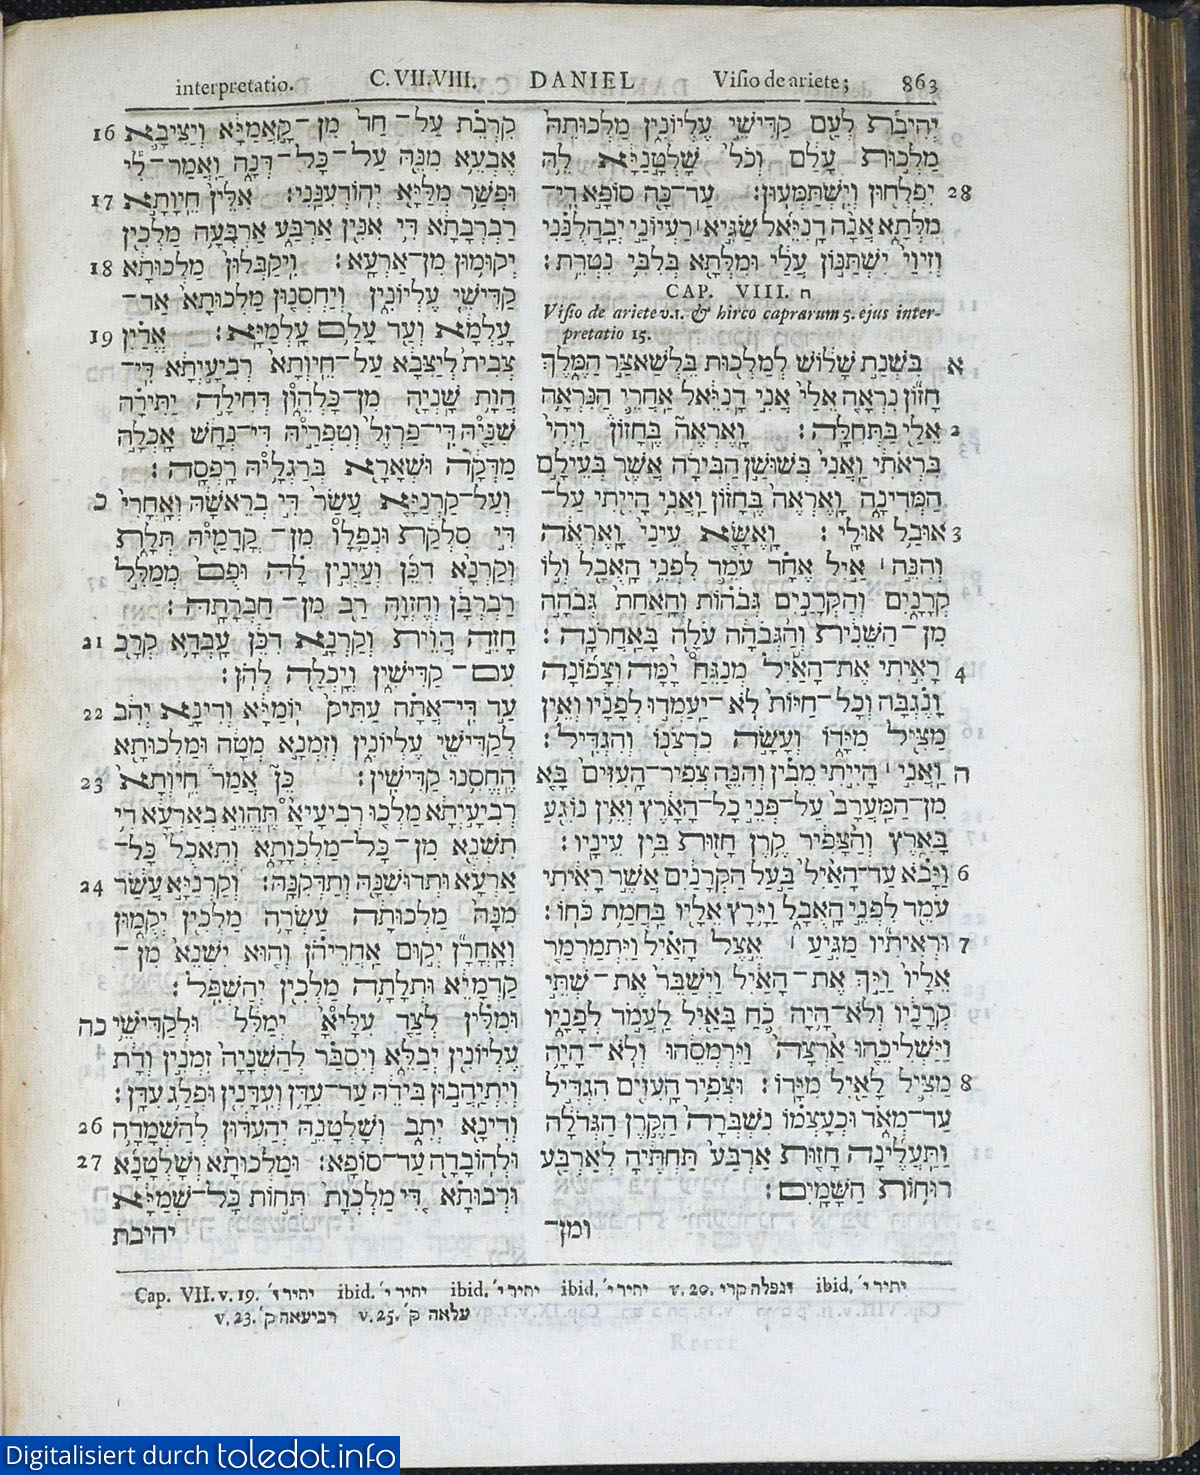 interpretatio. C. VII.VIII. DANIEL Visio de ariete; 863
16 קִרְבֵת עַל־חַד מִן־קָאֲמַיָּא וְיַצִּיבָא
אֶבְעֵא מִנֵּהּ עַל־כָּל־דְּנָה וַאֲמַר־לִי
17 וּפְשַׁר מִלַּיָּא יְהוֹדְעִנַּנִי׃ אִלֵּין חֵיוָתָא
רַבְרְבָתָא דִּי אִנִּין אַרְבַּע אַרְבְּעָה מַלְכִין
18 יְקוּמוּן מִן־אַרְעָא׃ וִיקַבְּלוּן מַלְכוּתָא
קַדִּישֵׁי עֶלְיוֹנִין וְיַחְסְנוּן מַלְכוּתָא עַד־
19 עָלְמָא וְעַד עָלַם עָלְמַיָּא׃ אֱדַיִן
צְבִית לְיַצָּבָא עַל־חֵיוְתָא רְבִיעָיְתָא דִּי־
הֲוָת שָׁנְיָה מִן־כָּלְּהֵון דְּחִילָה יַתִּירָה
שִׁנַּיהּ דִּי־פַרְזֶל וְטִפְרַיהּ דִּי־נְחָשׁ אָכְלָה
מַדְּקָה וּשְׁאָרָא בְּרַגְלַיהּ רָפְסָה׃
כ וְעַל־קַרְנַיָּא עֲשַׂר דִּי בְרֵאשַׁהּ וְאָחֳרִי
דִּי סִלְקַת וּנְפַלָו מִן־קֳדָמַיהּ תְּלָת
וְקַרְנָא דִכֵּן וְעַיְנִין לַהּ וּפֻם מְמַלִּל
רַבְרְבָן וְחֶזְוַהּ רַב מִן־חַבְרָתַהּ׃
21 חָזֵה הֲוֵית וְקַרְנָא דִכֵּן עָבְדָא קְרָב
עִם־קַדִּישִׁין וְיָכְלָה לְהֹן׃
22 עַד דִּי־אֲתָה עַתִּיק יוֹמַיָּא וְדִינָא יְהִב
לְקַדִּישֵׁי עֶלְיוֹנִין וְזִמְנָא מְטָה וּמַלְכוּתָא
23 הֶחֱסִנוּ קַדִּישִׁין׃ כֵּן אֲמַר חֵיוְתָא
רְבִיעָיְתָא מַלְכוּ רְבִיעָיאָ תֶּהֱוֵא בְאַרְעָא דִּי
תִשְׁנֵא מִן־כָּל־מַלְכְוָתָא וְתֵאכֻל כָּל־
24 אַרְעָא וּתְדוּשִׁנַּהּ וְתַדְּקִנַּהּ׃ וְקַרְנַיָּא עֲשַׂר
מִנַּהּ מַלְכוּתָה עַשְׂרָה מַלְכִין יְקֻמוּן
וְאָחֳרָן יְקוּם אַחֲרֵיהֹן וְהוּא יִשְׁנֵא מִן־
קַדְמָיֵא וּתְלָתָה מַלְכִין יְהַשְׁפִּל׃
כה וּמִלִּין לְצַד עִלָּיאָ יְמַלִּל וּלְקַדִּישֵׁי
עֶלְיוֹנִין יְבַלֵּא וְיִסְבַּר לְהַשְׁנָיָה זִמְנִין וְדָת
וְיִתְיַהֲבוּן בִּידֵהּ עַד־עִדָּן וְעִדָּנִין וּפְלַג עִדָּן׃
26 וְדִינָא יִתִּב וְשָׁלְטָנֵהּ יְהַעְדּוֹן לְהַשְׁמָדָה
27 וּלְהוֹבָדָה עַד־סוֹפָא׃ וּמַלְכוּתָא וְשָׁלְטָנָא
וּרְבוּתָא דִּי מַלְכְוָת תְּחוֹת כָּל־שְׁמַיָּא
יהיבת
יְהִיבַת לְעַם קַדִּישֵׁי עֶלְיוֹנִין מַלְכוּתֵהּ
מַלְכוּת עָלַם וְכֹל שָׁלְטָנַיָּא לֵהּ
28 יִפְלְחוּן וְיִשְׁתַּמְּעוּן׃ עַד־כָּה סוֹפָא דִי־
מִלְּתָא אֲנָה דָנִיֵּאל שַׂגִּיא׀ רַעְיוֹנַי יְבַהֲלֻנַּנִי
וְזִיוַי יִשְׁתַּנּוֹן עֲלַי וּמִלְּתָא בְּלִבִּי נִטְרֵת׃
CAP. VIII. ח
Visio de ariete v.1. & hirco caprarum 5. ejus inter-
pretatio 15.
א בִּשְׁנַת שָׁלוֹשׁ לְמַלְכוּת בֵּלְשַׁאצַּר הַמֶּלֶךְ
חָזוֹן נִרְאָה אֵלַי אֲנִי דָנִיֵּאל אַחֲרֵי הַנִּרְאָה
2 אֵלַי בַּתְּחִלָּה׃ וָאֶרְאֶה בֶּחָזוֹן וַיְהִי
בִּרְאֹתִי וַאֲנִי בְּשׁוּשַׁן הַבִּירָה אֲשֶׁר בְּעֵילָם
הַמְּדִינָה וָאֶרְאֶה בֶּחָזוֹן וַאֲנִי הָיִיתִי עַל־
3 אוּבַל אוּלָי׃ וָאֶשָּׂא עֵינַי וָאֶרְאֶה
וְהִנֵּה׀ אַיִל אֶחָד עֹמֵד לִפְנֵי הָאֻבָל וְלוֹ
קְרָנָיִם וְהַקְּרָנַיִם גְּבֹהוֹת וְהָאַחַת גְּבֹהָה
מִן־הַשֵּׁנִית וְהַגְּבֹהָה עֹלָה בָּאַחֲרֹנָה׃
4 רָאִיתִי אֶת־הָאַיִל מְנַגֵּחַ יָמָּה וְצָפוֹנָה
וָנֶגְבָּה וְכָל־חַיּוֹת לֹא־יַעַמְדוּ לְפָנָיו וְאֵין
מַצִּיל מִיָּדוֹ וְעָשָׂה כִרְצֹנוֹ וְהִגְדִּיל׃
ה וַאֲנִי׀ הָיִיתִי מֵבִין וְהִנֵּה צְפִיר־הָעִזִּים בָּא
מִן־הַמַּעֲרָב עַל־פְּנֵי כָל־הָאָרֶץ וְאֵין נוֹגֵעַ
בָּאָרֶץ וְהַצָּפִיר קֶרֶן חָזוּת בֵּין עֵינָיו׃
6 וַיָּבֹא עַד־הָאַיִל בַּעַל הַקְּרָנַיִם אֲשֶׁר רָאִיתִי
עֹמֵד לִפְנֵי הָאֻבָל וַיָּרָץ אֵלָיו בַּחֲמַת כֹּחוֹ׃
7 וּרְאִיתִיו מַגִּיעַ׀ אֵצֶל הָאַיִל וַיִּתְמַרְמַר
אֵלָיו וַיַּךְ אֶת־הָאַיִל וַיְשַׁבֵּר אֶת־שְׁתֵּי
קְרָנָיו וְלֹא־הָיָה כֹחַ בָּאַיִל לַעֲמֹד לְפָנָיו
וַיַּשְׁלִיכֵהוּ אַרְצָה וַיִּרְמְסֵהוּ וְלֹא־הָיָה
8 מַצִּיל לָאַיִל מִיָּדוֹ׃ וּצְפִיר הָעִזִּים הִגְדִּיל
עַד־מְאֹד וּכְעָצְמוֹ נִשְׁבְּרָה הַקֶּרֶן הַגְּדֹלָה
וַתַּעֲלֶינָה חָזוּת אַרְבַּע תַּחְתֶּיהָ לְאַרְבַּע
רוּחוֹת הַשָּׁמָיִם׃
ומן־
Cap. VII. v. 19. יתיר ד׳ ibid. יתיר י׳ ibid. יתיר י׳ ibid. יתיר י׳ v. 20. ונפלה קרי ibid. יתיר י׳
v. 23. רביעאה ק׳ v. 25. עלאה ק׳
Digitalisiert durch toledot.info